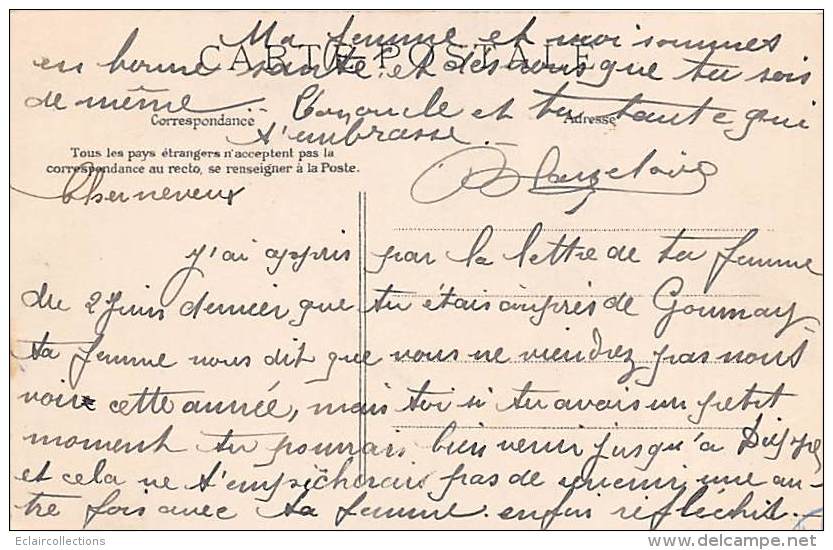 CARTE POSTALE
Ma femme et moi sommes
en bonne santé et désirons que tu sois
de même. Ton oncle et ta tante qui
Correspondance
Adresse
t'embrasse.
Tous les pays étrangers n'acceptent pas la
correspondance au recto, se renseigner à la Poste.
Cher neveux
j'ai appris par la lettre de ta femme
du 2 Juin dernier que tu étais auprès de Gournay
ta femme nous dit que vous ne viendrez pas nous
voir cette année, mais toi si tu avais un petit
moment tu pourrais bien venir jusqu'à Dieppe
et cela ne t'empêcherais pas de revenir une au-
tre fois avec ta femme. enfin réfléchit.
Eclaircollections
delcampe.net